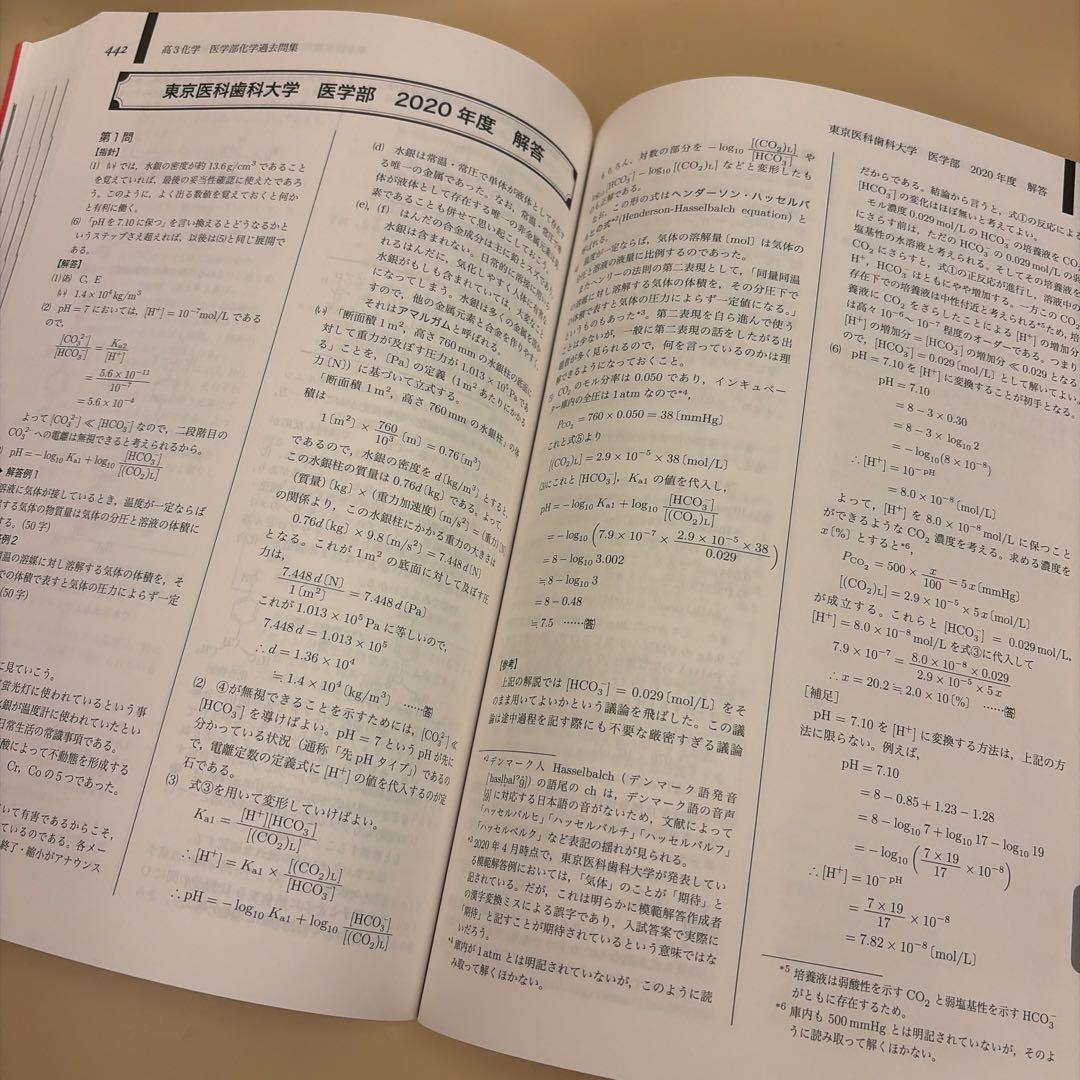 442
高3化学 医学部化学過去問集
東京医科歯科大学 医学部 2020年度 解答
第1問
【指針】
(1) (い)では,水銀の密度が約13.6g/cm³であること
を覚えていれば,最後の妥当性確認に使えたであろ
う。このように,よく出る数値を覚えておくと何か
と有利に働く。
(6) 「pHを7.10に保つ」を言い換えるとどうなるかと
いうステップさえ超えれば,以後は(5)と同じ展開で
ある。
【解答】
(1)(あ) C, E
(い) 1.4×10⁴kg/m³
(2) pH=7においては,[H⁺]=10⁻⁷mol/Lである
ので,
[CO₃²⁻]/[HCO₃⁻] = Ka2/[H⁺]
= 5.6×10⁻¹¹/10⁻⁷
= 5.6×10⁻⁴
よって[CO₃²⁻]≪[HCO₃⁻]なので,二段階目の
CO₃²⁻への電離は無視できると考えられるから。
pH=−log₁₀Ka1+log₁₀ [HCO₃⁻]/[(CO₂)L]
解答例1
溶液に気体が接しているとき,温度が一定ならば
する気体の物質量は気体の分圧と溶液の体積に
する。(50字)
答例2
温の溶媒に対し溶解する気体の体積を,そ
での体積で表すと気体の圧力によらず一定
(50字)
に見ていこう。
蛍光灯に使われているという事
化銀が温度計に使われていたとい
日常生活の常識事項である。
酸によって不動態を形成する
Cr, Coの5つであった。
いて有害であるからこそ,
ているのである。各メー
終了・縮小がアナウンス
(d) 水銀は常温・常圧で単体が液体として存在す
る唯一の金属であった。なお,常温・常圧で単
体が液体として存在する唯一の非金属元素は臭
素であることも併せて思い起こしておこう。
(e), (f) はんだの合金成分は主に鉛とスズであり,
水銀は含まれない。日常的に溶接に用いら
れるはんだに,気化しやすく人体に有害な
水銀がもしも含まれていては,大変なこと
になってしまう。水銀は多くの金属を溶か
すので,他の金属元素と合金を作りやすく,
それはアマルガムと呼ばれる。
(い) 「断面積1m²,高さ760mmの水銀柱の底面に
対して重力が及ぼす圧力が1.013×10⁵Paであ
る」ことを,[Pa]の定義(1m²あたりにかかる
力[N])に基づいて立式する。
「断面積1m²,高さ760mmの水銀柱」の体
積は
1[m²]×760/10³[m]=0.76[m³]
であるので,水銀の密度をd[kg/m³]とすると,
この水銀柱の質量は0.76d[kg]である。よって,
(質量)[kg]×(重力加速度)[m/s²]=(重力)[N]
の関係より,この水銀柱にかかる重力の大きさは
0.76d[kg]×9.8[m/s²]=7.448d[N]
となる。これが1m²の底面に対して及ぼす圧
力は,
7.448d[N]/1[m²]=7.448d[Pa]
これが1.013×10⁵Paに等しいので,
7.448d=1.013×10⁵
∴d=1.36×10⁴
≒1.4×10⁴[kg/m³] ……答
(2) ④が無視できることを示すためには,[CO₃²⁻]≪
[HCO₃⁻]を導けばよい。pH=7というpHが先に
分かっている状況(通称「先pHタイプ」)であるの
で,電離定数の定義式に[H⁺]の値を代入するのが定
石である。
(3) 式③を用いて変形していけばよい。
Ka1=[H⁺][HCO₃⁻]/[(CO₂)L]
∴[H⁺]=Ka1×[(CO₂)L]/[HCO₃⁻]
∴pH=−log₁₀Ka1+log₁₀ [HCO₃⁻]/[(CO₂)L]
東京医科歯科大学 医学部 2020年度 解答
もちろん,対数の部分を −log₁₀ [(CO₂)L]/[HCO₃⁻] や
[HCO₃⁻]−log₁₀[(CO₂)L]などと変形したも
も正解である。
なお,この形の式はヘンダーソン・ハッセルバ
の式*²(Henderson-Hasselbalch equation)と
ばれる。
温度が一定ならば,気体の溶解量[mol]は気体の
圧と溶液の液量に比例するのであった。
またヘンリーの法則の第二表現として,「同量同温
の溶媒に対し溶解する気体の体積を,その分圧下で
の体積で表すと気体の圧力によらず一定値になる。」
というものもあった*³。第二表現を自ら進んで使う
ことは少ないが,一般に第二表現の話をしたがる出
題者が多く見られるので,何を言っているのかは理
解できるようになっておくこと。
CO₂のモル分率は0.050であり,インキュベー
ター庫内の全圧は1atmなので*⁴,
PCO₂=760×0.050=38[mmHg]
これと式⑤より
[(CO₂)L]=2.9×10⁻⁵×38[mol/L]
(3)にこれと[HCO₃⁻],Ka1の値を代入し,
pH=−log₁₀Ka1+log₁₀ [HCO₃⁻]/[(CO₂)L]
=−log₁₀(7.9×10⁻⁷×2.9×10⁻⁵×38/0.029)
=8−log₁₀3.002
≒8−log₁₀3
=8−0.48
≒7.5 ……答
【参考】
上記の解説では[HCO₃⁻]=0.029[mol/L]をそ
のまま用いてよいかという議論を飛ばした。この議
論は途中過程を記す際にも不要な厳密すぎる議論
*²デンマーク人 Hasselbalch(デンマーク語発音
の語尾のchは,デンマーク語の音声
に対応する日本語の音がないため,文献によって
「ハッセルバルヒ」「ハッセルバルチ」「ハッセルバルフ」
「ハッセルベルク」など表記の揺れが見られる。
*³2020年4月時点で,東京医科歯科大学が発表してい
る模範解答例においては,「気体」のことが「期待」と
記されている。だが,これは明らかに模範解答作成者
の漢字変換ミスによる誤字であり,入試答案で実際に
「期待」と記すことが期待されているという意味ではな
いだろう。
*⁴庫内が1atmとは明記されていないが,このように読
み取って解くほかない。
だからである。結論から言うと,式①の反応による
[HCO₃⁻]の変化はほぼ無いと考えてよい。
モル濃度0.029mol/LのHCO₃⁻の培養液をCO₂
にさらす前は,ただのHCO₃⁻の0.029mol/Lの弱
塩基性の水溶液と考えられる。そしてその培養液を
CO₂にさらすと,式①の正反応が進行し,溶液中の
H⁺,HCO₃⁻はともにやや増加する。一方このCO₂
存在下での培養液は中性付近と考えられる*⁵ため,培
養液にCO₂をさらしたことによる[H⁺]の増加分
は高々10⁻⁶〜10⁻⁷程度のオーダーである。つまり
[H⁺]の増加分=[HCO₃⁻]の増加分≪0.029となる
ので,[HCO₃⁻]=0.029[mol/L]として解いてよい。
(6) pH=7.10を[H⁺]に変換することが初手となる。
pH=7.10
=8−3×0.30
=8−3×log₁₀2
=−log₁₀(8×10⁻⁸)
∴[H⁺]=10⁻pH
=8.0×10⁻⁸[mol/L]
よって,[H⁺]を8.0×10⁻⁸mol/Lに保つこと
ができるようなCO₂濃度を考える。求める濃度を
x[%]とすると*⁶,
PCO₂=500×x/100=5x[mmHg]
[(CO₂)L]=2.9×10⁻⁵×5x[mol/L]
が成立する。これらと[HCO₃⁻]=0.029mol/L,
[H⁺]=8.0×10⁻⁸mol/Lを式③に代入して
7.9×10⁻⁷=8.0×10⁻⁸×0.029/2.9×10⁻⁵×5x
∴x=20.2≒2.0×10[%] ……答
[補足]
pH=7.10を[H⁺]に変換する方法は,上記の方
法に限らない。例えば,
pH=7.10
=8−0.85+1.23−1.28
=8−log₁₀7+log₁₀17−log₁₀19
=−log₁₀(7×19/17×10⁻⁸)
∴[H⁺]=10⁻pH
=7×19/17×10⁻⁸
=7.82×10⁻⁸[mol/L]
*⁵培養液は弱酸性を示すCO₂と弱塩基性を示すHCO₃⁻
がともに存在するため。
*⁶庫内も500mmHgとは明記されていないが,そのよ
うに読み取って解くほかない。